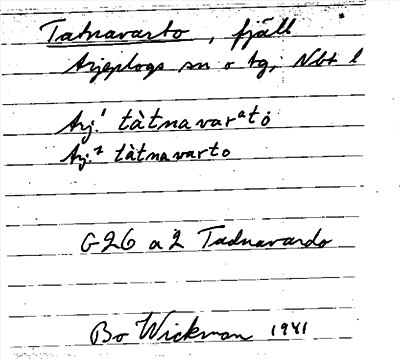 Tatnavarto, fjäll
Arjeplogs sn o tg, Nbt l
Arj.¹ tàtnavarᵃtȯ
Arj.² tàtnavarto
G26 a2 Tadnavardo
Bo Wickman 1941